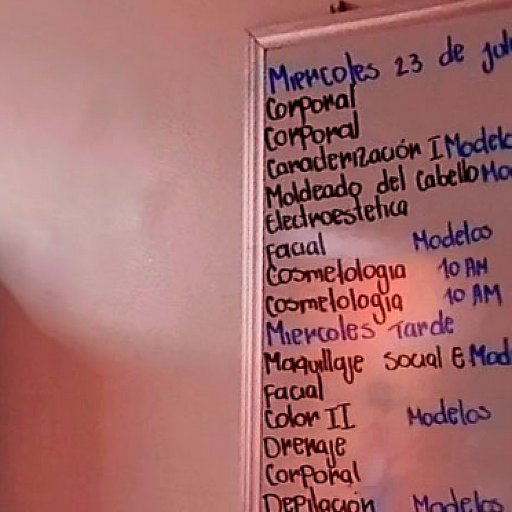 Miercoles 23 de jul
Corporal
Corporal
Caracterización I Modelo
Moldeado del Cabello Mo
Electroestetica
Facial Modelos
Cosmetologia 10 AM
Cosmetologia 10 AM
Miercoles Tarde
Maquillaje Social E Mod
Facial
Color II Modelos
Drenaje
Corporal
Depilación Modelos